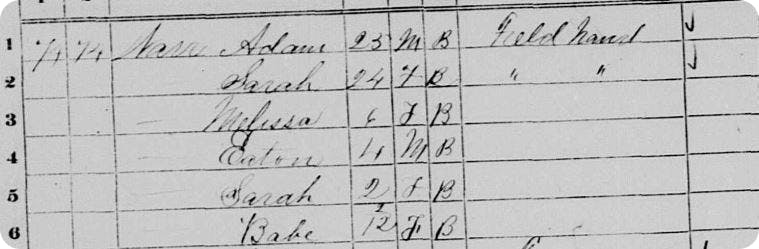 1 74 74 Adam 23 M B Field hand
2 Sarah 24 F B " "
3 — Melissa 6 F B
4 — Eaton 4 M B
5 — Sarah 2 F B
6 — Babe 1/12 F B